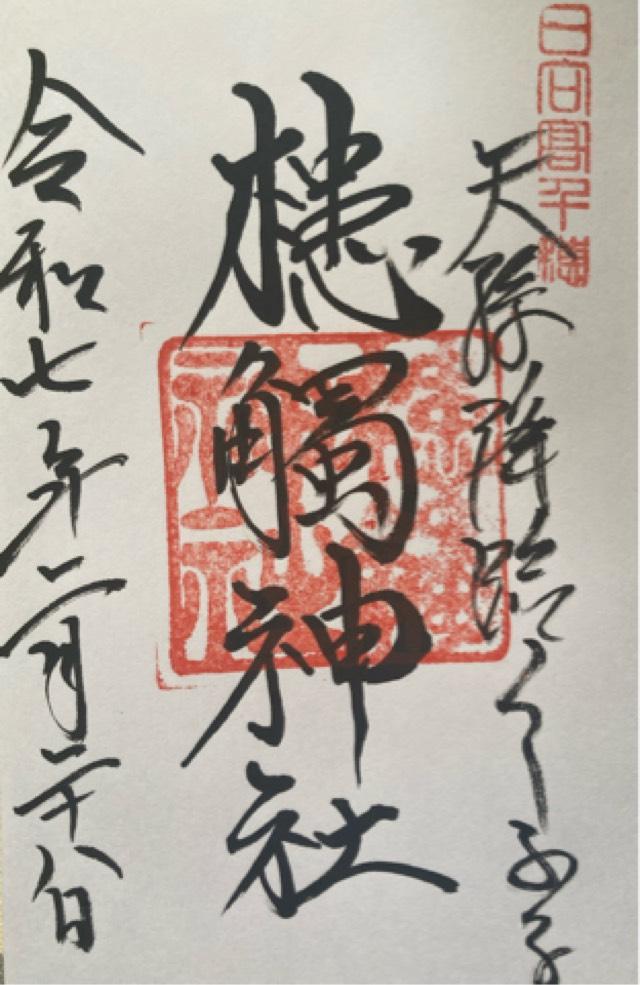 日向高千穂
天孫降臨くしふる
槵觸神社
令和七年二月二十八日